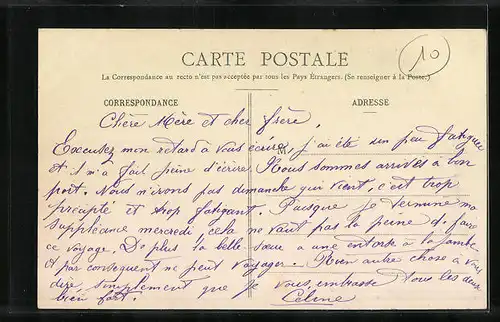 10
CARTE POSTALE
La Correspondance au recto n'est pas acceptée par tous les Pays Étrangers. (Se renseigner à la Poste.)
CORRESPONDANCE
ADRESSE
Chère Mère et cher frère,
Excusez mon retard à vous écrire, j'ai été un peu fatiguée
M
et il m'a fait peine d'écrire. Nous sommes arrivés à bon
port. Nous n'irons pas dimanche qui vient, c'est trop
précipité et trop fatigant. Puisque je termine ma
suppléance mercredi cela ne vaut pas la peine de faire
ce voyage. De plus la belle-sœur a une entorse à la jambe
et par conséquent ne peut voyager. Rien autre chose à vous
dire, simplement que je vous embrasse tous les deux
bien fort.
Céline